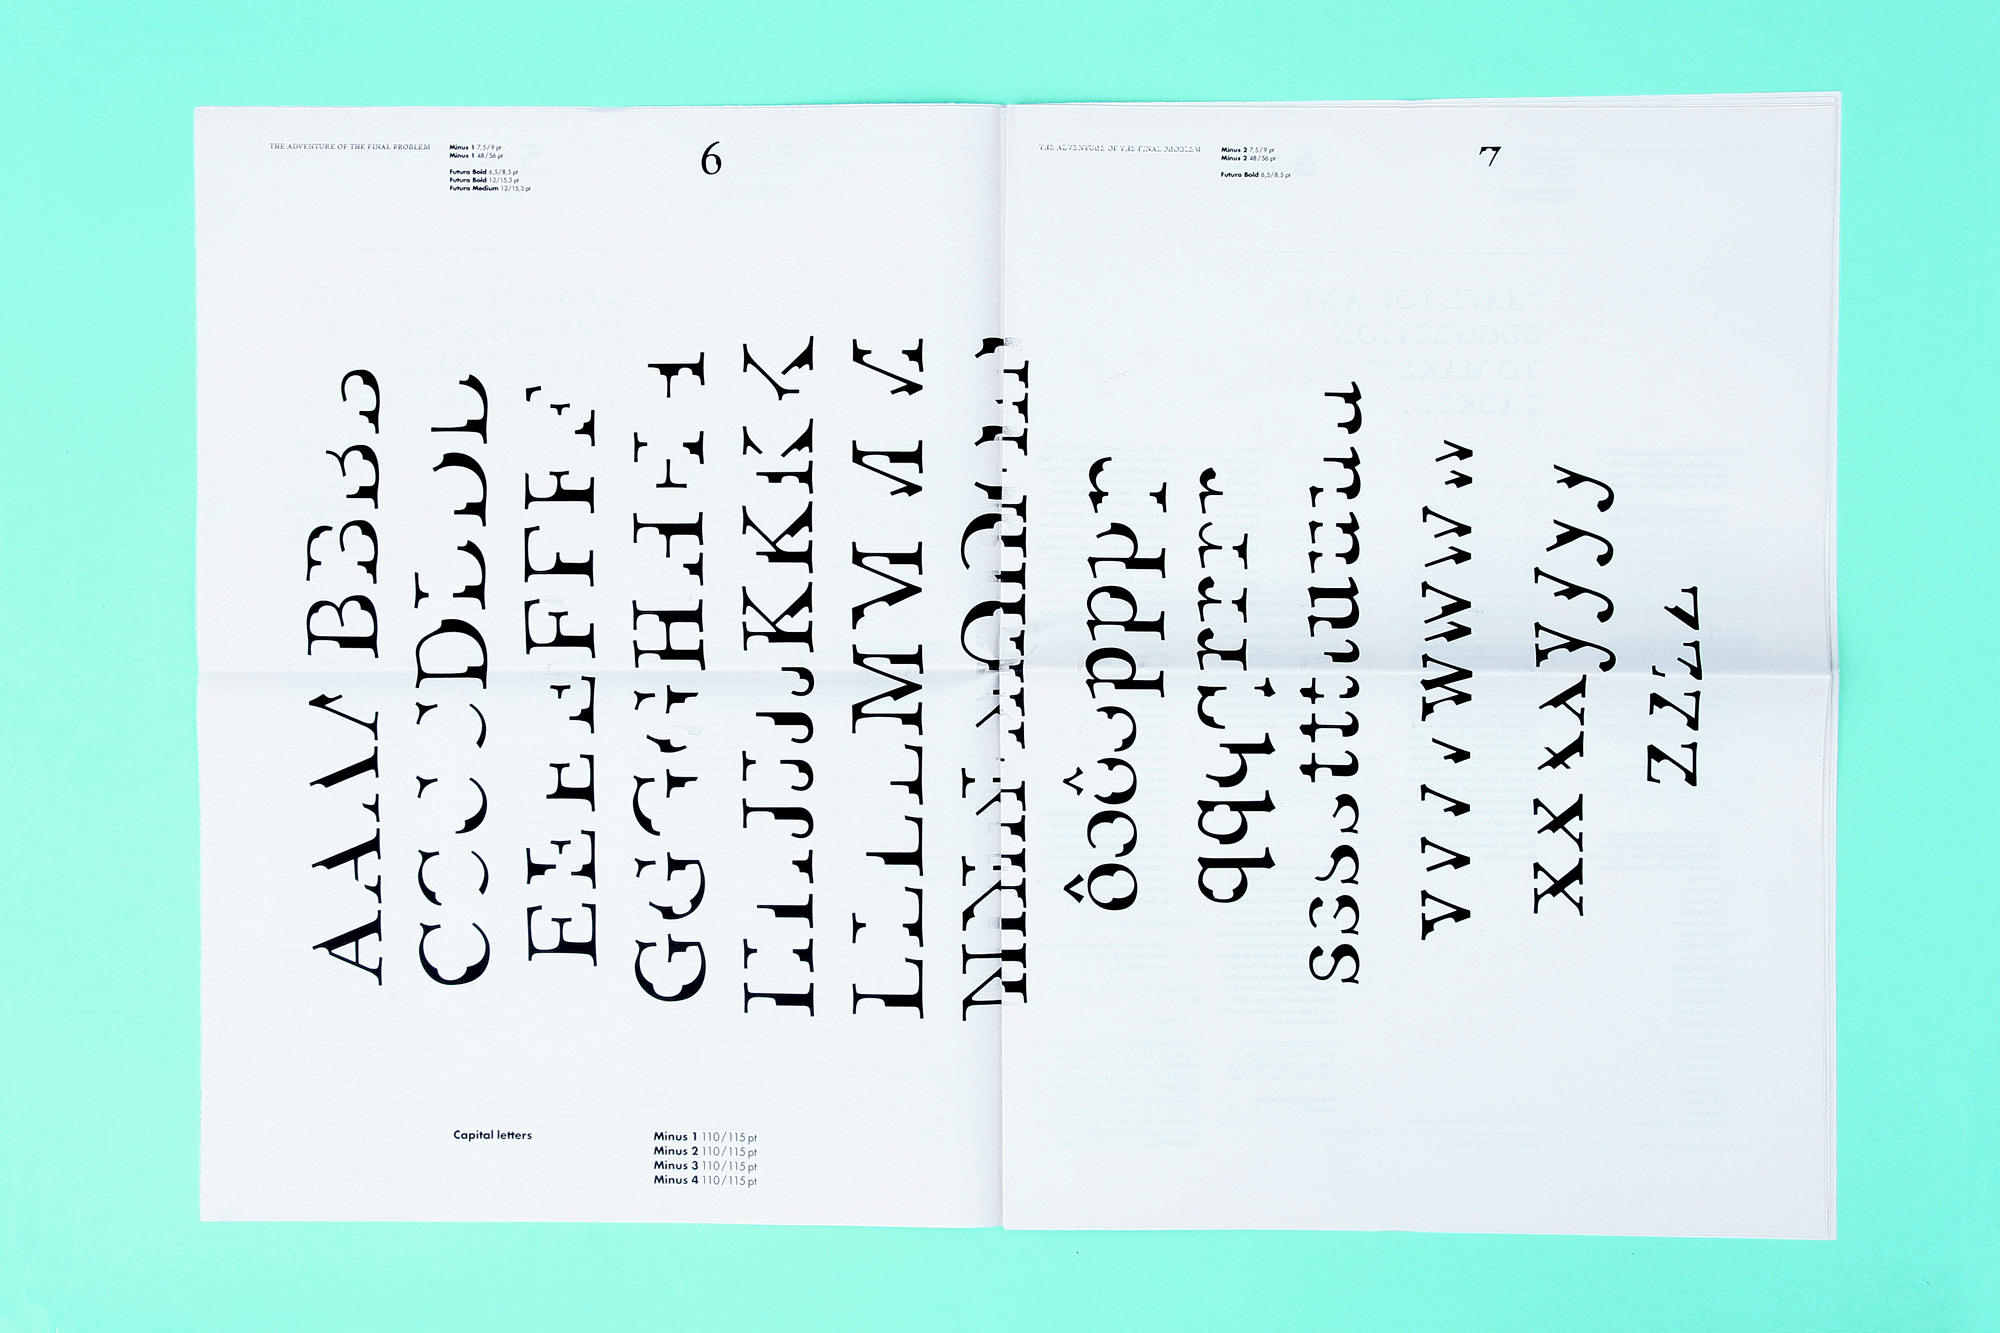 THE ADVENTURE OF THE FINAL PROBLEM
Minus 1 7,5/9 pt
Minus 1 48/56 pt
Futura Bold 6,5/8,5 pt
Futura Bold 12/15,3 pt
Futura Medium 12/15,3 pt
6
THE ADVENTURE OF THE FINAL PROBLEM
Minus 2 7,5/9 pt
Minus 2 48/56 pt
Futura Bold 6,5/8,5 pt
7
AAAA BBBB
CCCC DDDD
EEEE FFFF
GGGG HHHH
IIII JJJJ KKKK
LLLL MMMM
ôôôô pppp
qqqq rrrr
ssss tttt uuuu
vvvv wwww
xxxx yyyy
zzzz
Capital letters
Minus 1 110/115 pt
Minus 2 110/115 pt
Minus 3 110/115 pt
Minus 4 110/115 pt